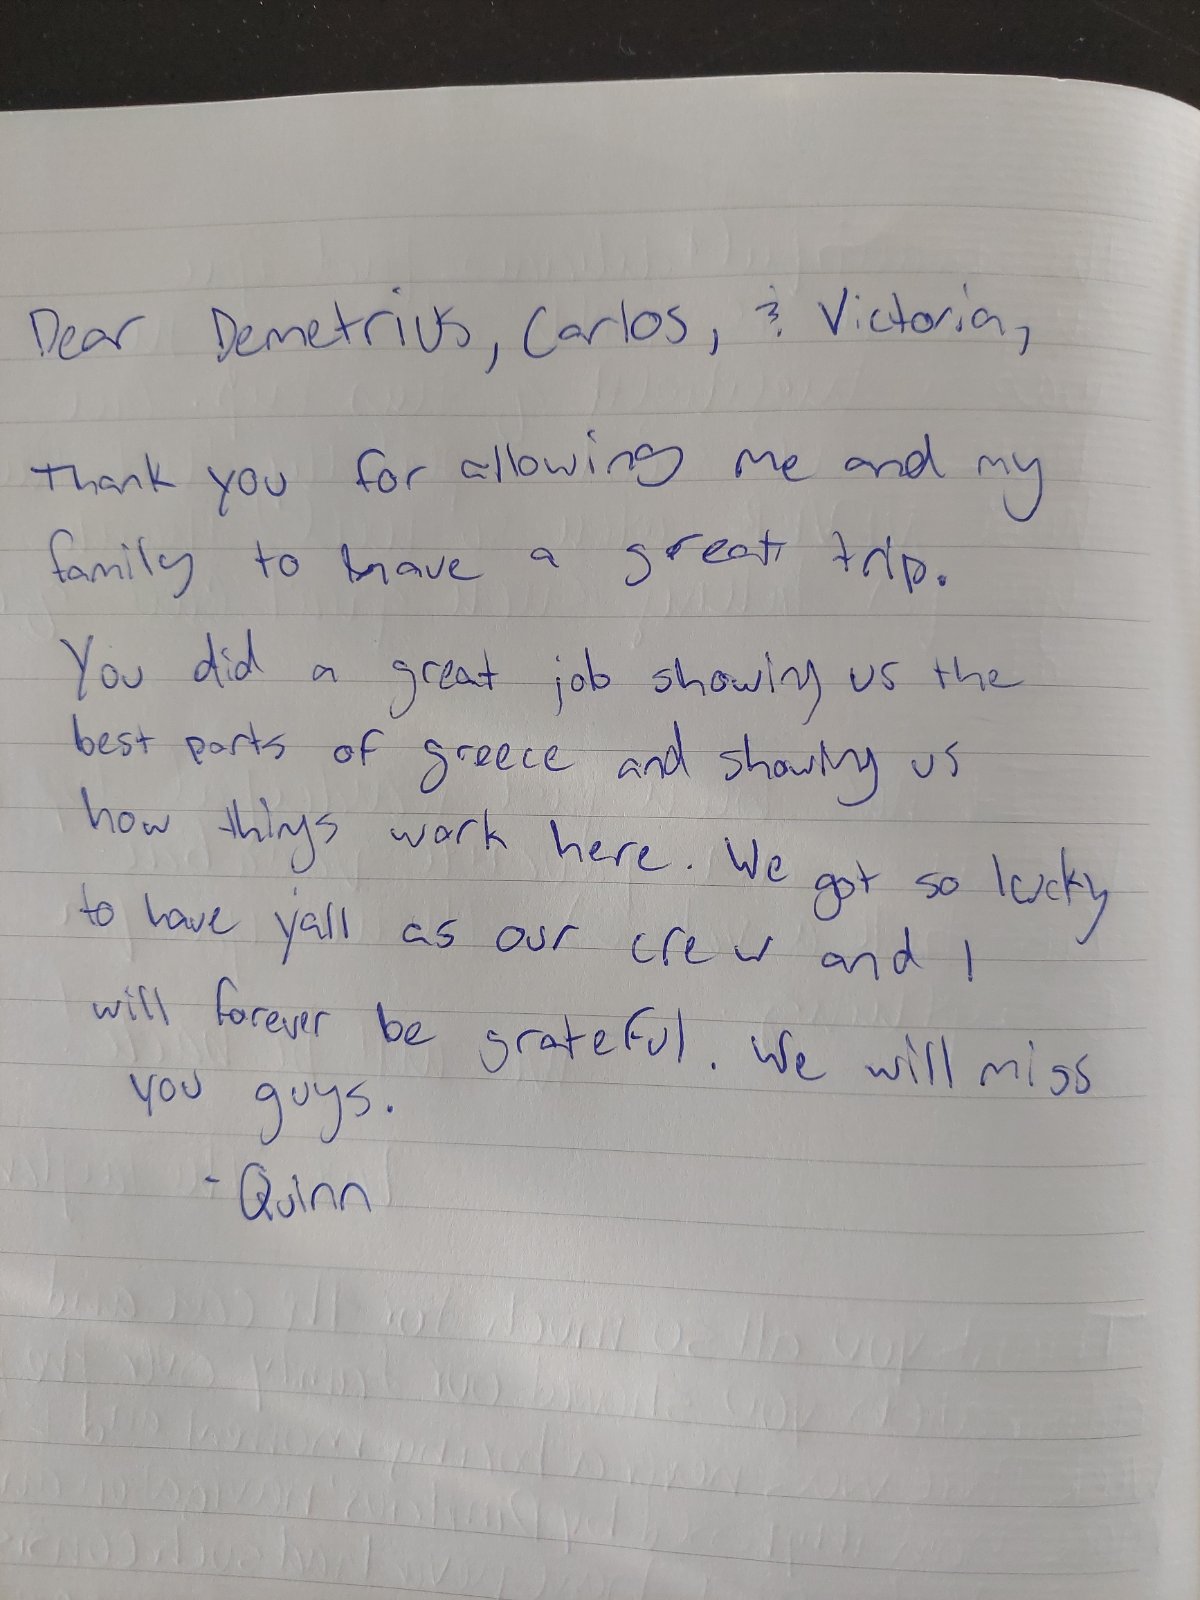 Dear Demetrius, Carlos, & Victoria,
Thank you for allowing me and my
family to have a great trip.
You did a great job showing us the
best parts of greece and showing us
how things work here. We got so lucky
to have y'all as our crew and I
will forever be grateful. We will miss
you guys.
- Quinn